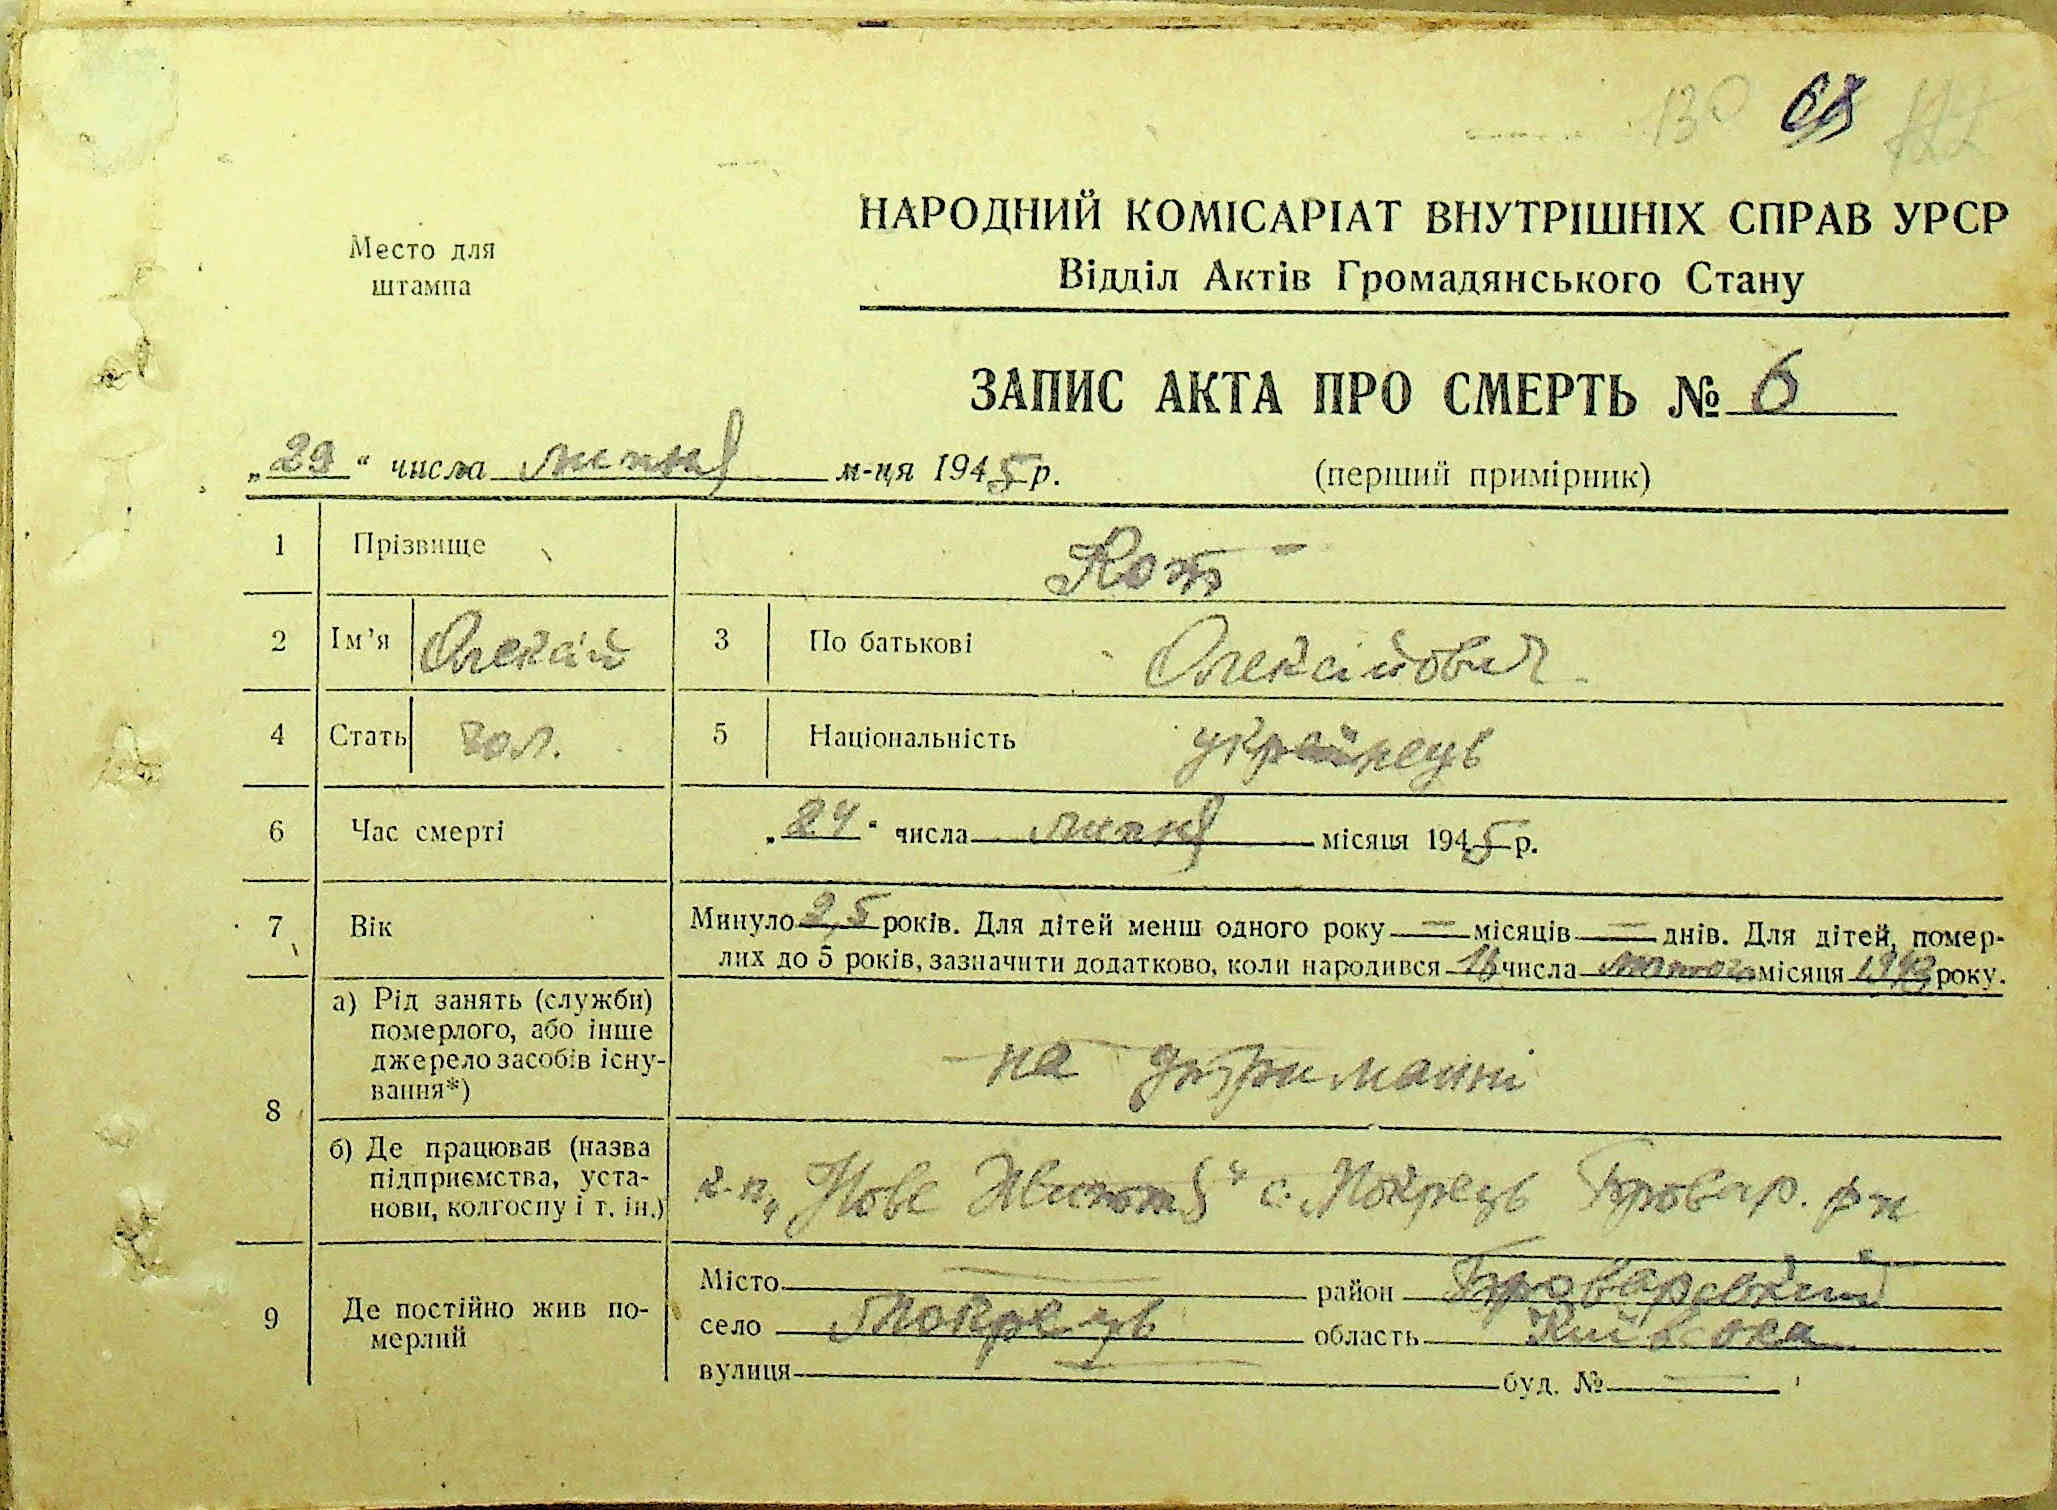 130 68
НАРОДНИЙ КОМІСАРІАТ ВНУТРІШНІХ СПРАВ УРСР
Место для
штампа
Відділ Актів Громадянського Стану
ЗАПИС АКТА ПРО СМЕРТЬ № 6
„29“ числа липня м-ця 1945 р. (перший примірник)
1 Прізвище Кот
2 Ім’я Олексій 3 По батькові Олексійович
4 Стать чол. 5 Національність українець
6 Час смерті „24“ числа липня місяця 1945 р.
7 Вік Минуло 2,5 років. Для дітей менш одного року — місяців — днів. Для дітей, помер-
лих до 5 років, зазначити додатково, коли народився 16 числа лютого місяця 1943 року.
8 а) Рід занять (служби)
померлого, або інше
джерело засобів існу-
вання*)
на утриманні
б) Де працював (назва
підприємства, уста-
нови, колгоспу і т. ін.)
к-п „Нове Життя“ с. Мокрець Бровар. р-н
9 Де постійно жив по-
мерлий
Місто — район Броварський
село Мокрець область Київська
вулиця — буд. № —